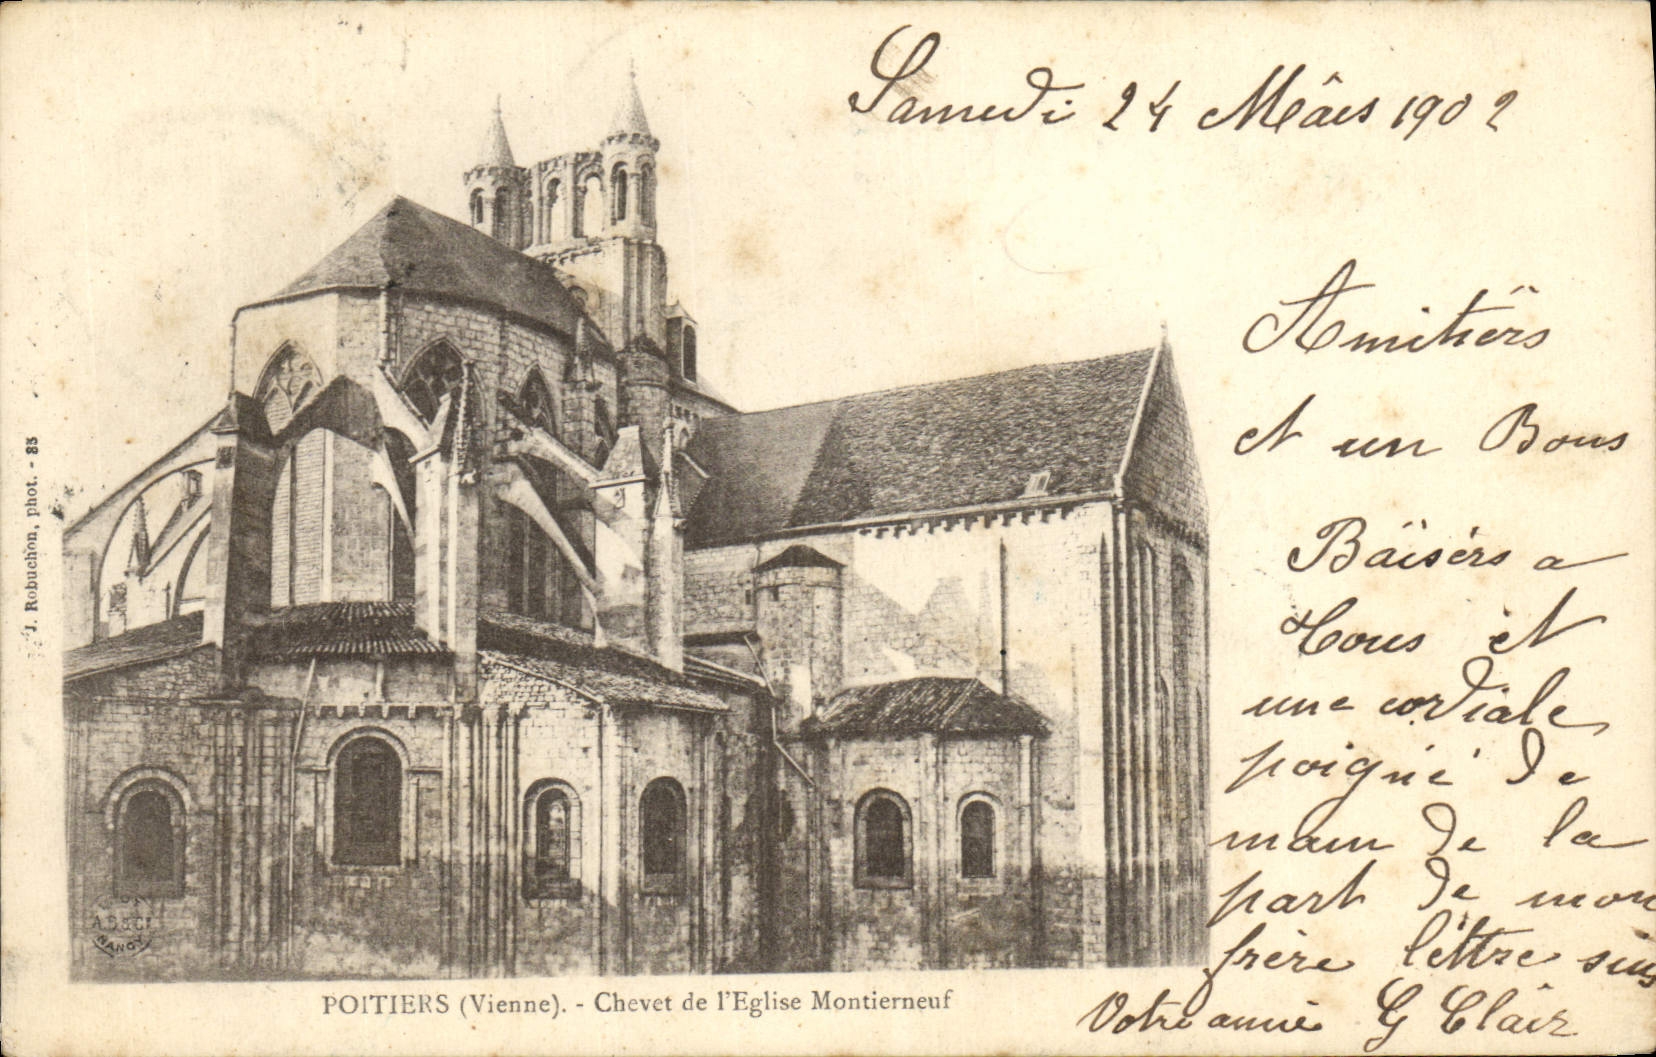 Samedi 24 Mârs 1902
Amitiërs
et un Bons
Bäisérs a
tous et
une cordiale
poigné de
main de la
part de mon
frère lèttre
Votre amie G Clâir
J. Robuchon, phot. - 83
A.B & Cie
NANCY
POITIERS (Vienne). - Chevet de l'Eglise Montierneuf